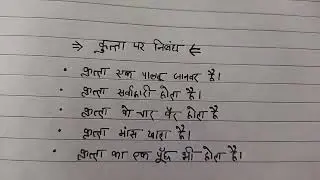 ⇒ कुत्ता पर निबंध ⇐
• कुत्ता एक पालतू जानवर है।
• कुत्ता सर्वाहारी होता है।
• कुत्ता के चार पैर होता है
• कुत्ता मांस खाता है।
• कुत्ता का एक पूँछ भी होता है।